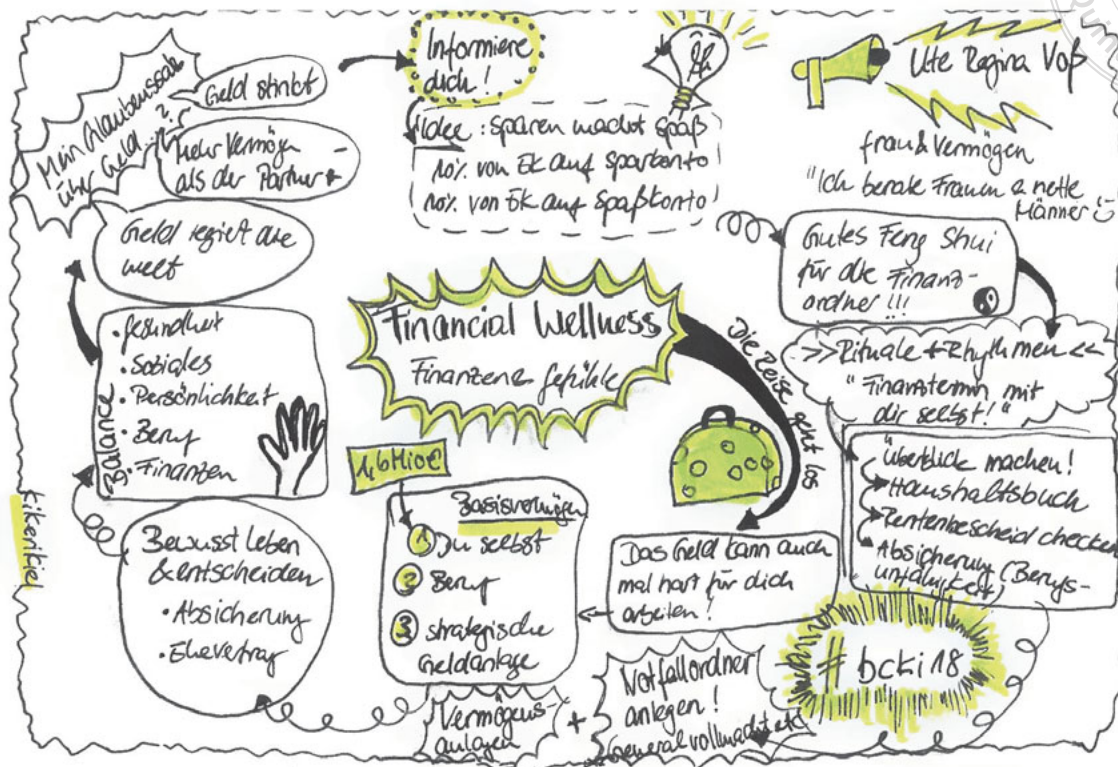 Mein Glaubenssatz
über Geld...?
Geld stinkt
Mehr Vermögen -
als der Partner +
Geld regiert die
Welt
Informiere
dich!
Idee: Sparen macht Spaß
10% von Ek auf Sparkonto
10% von Ek auf Spaßkonto
Ute Regina Voß
frau & Vermögen
"Ich berate Frauen & nette
Männer
Gutes Feng Shui
für die Finanz-
ordner!!!
>>Rituale + Rhythmen<<
"Finanztermin mit
dir selbst!"
Überblick machen!
Haushaltsbuch
Rentenbescheid checken
Absicherung (Berufs-
unfähigkeit)
Financial Wellness
Finanzen & Gefühle
Die Reise geht los
Balance
• Gesundheit
• Soziales
• Persönlichkeit
• Beruf
• Finanzen
kikerikiel
Bewusst leben
& entscheiden
• Absicherung
• Ehevertrag
1,6 Mio€
Basisvermögen
1. Du selbst
2. Beruf
3. strategische
Geldanlage
Das Geld kann auch
mal hart für dich
arbeiten!
Vermögens-
anlagen
+
Notfallordner
anlegen!
Generalvollmacht etc
#bcki18